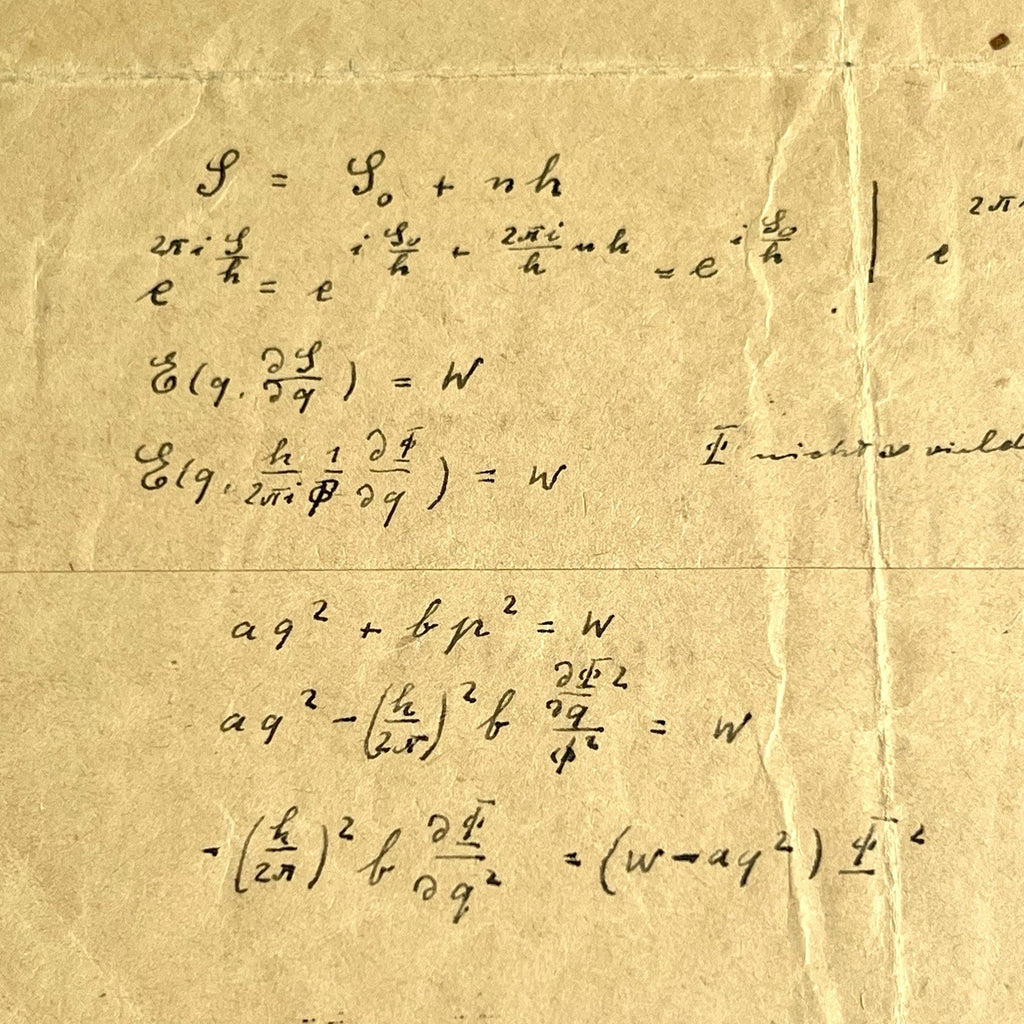 S = S₀ + nh
e^{2πi S/h} = e^{i S₀/h + 2πi/h nh} = e^{i S₀/h} | e^{2π
E(q, ∂S/∂q) = W
E(q, h/2πi 1/Φ ∂Φ/∂q) = W Φ nicht
aq² + bp² = W
aq² - (h/2π)² b (∂Φ/∂q)²/Φ² = W
-(h/2π)² b ∂Φ/∂q² = (W - aq²) Φ²